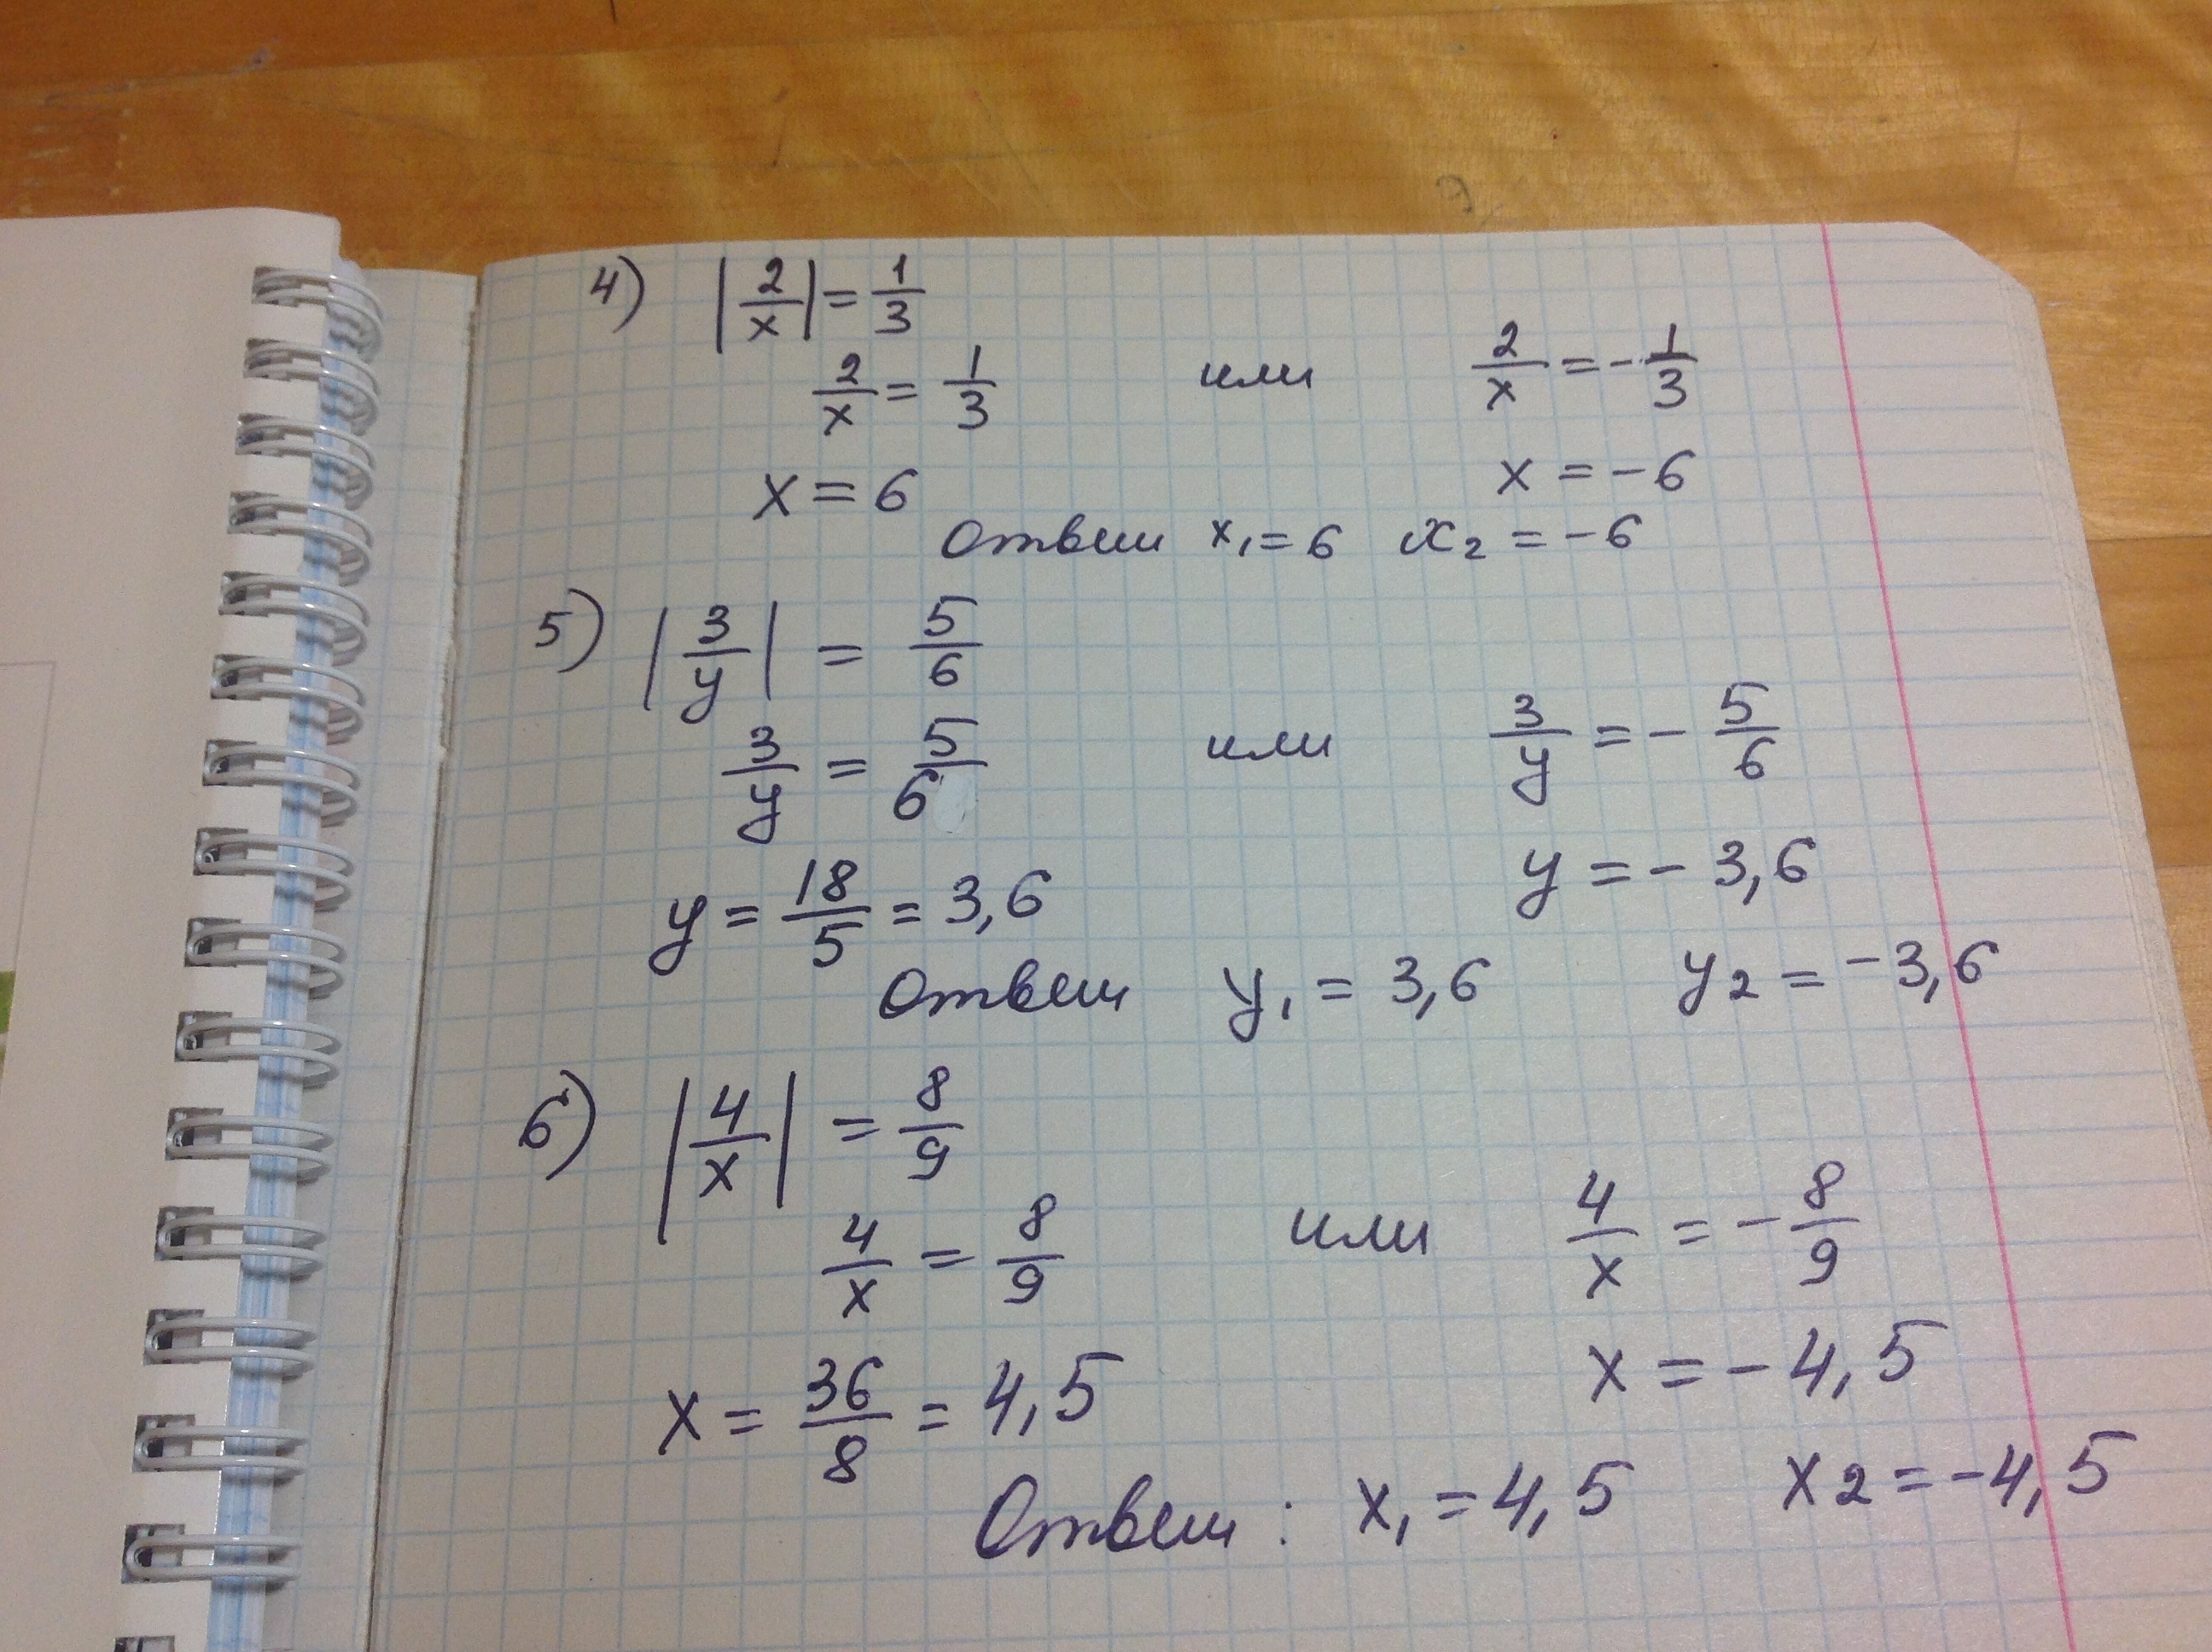 4) |2/x| = 1/3
2/x = 1/3 или 2/x = -1/3
x = 6 x = -6
Ответ x₁ = 6 x₂ = -6
5) |3/y| = 5/6
3/y = 5/6 или 3/y = - 5/6
y = 18/5 = 3,6 y = - 3,6
Ответ y₁ = 3,6 y₂ = -3,6
6) |4/x| = 8/9
4/x = 8/9 или 4/x = - 8/9
x = 36/8 = 4,5 x = - 4,5
Ответ: x₁ = 4,5 x₂ = -4,5